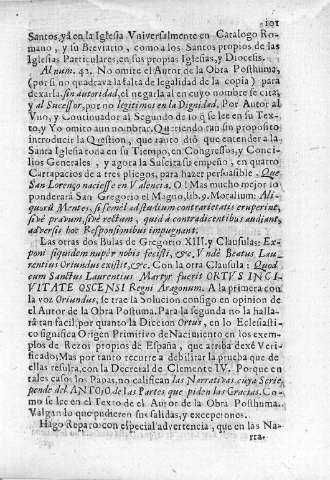 101
Santos, yá en la Iglesia Vniversalmente en Catalogo Ro-
mano, y su Breviario, como a los Santos propios de las
Iglesias Particulares, en sus propias Iglesias, y Diocesis.
Al num. 42. No omite el Autor de la Obra Posthuma,
(por si no quadrava la falta de legalidad de la copia) para
dexarla sin autoridad, el negarla al en cuyo nombre se cita,
y al Sucessor, por no legitimos en la Dignidad. Por Autor al
Vno, y Continuador al Segundo de lo q̃ se lee en su Tex-
to, y Yo omito aun nombrar. Queriendo tan sin proposito
introducir la Question, que tanto dió que entender a la
Santa Iglesia toda en su Tiempo, en Congressos, y Conci-
lios Generales, y agora la Suscita su empeño, en quatro
Cartapacios de a tres pliegos, para hazer persuasible, Que
San Lorenço naciesse en Valencia. O! Mas mucho mejor lo
ponderará San Gregorio el Magno, lib. 9. Moralium. Ali-
quorũ Mentes, si semel ad studium contrarietatis eruperint,
sivè pravum, sivè rectum, quid à contradicentibus audiant,
adversis hoc Responsionibus impugnant.
Las otras dos Bulas de Gregorio XIII. y Clausulas: Ex-
poni siquidem nupèr nobis fecisti, &c. V ndè Beatus Lau-
rentius Oriundus existit, &c. Con la otra Clausula: Quod
cum Sanctus Laurentius Martyr fuerit ORTVS IN CI-
VITATE OSCENSI Regni Aragonum. A la primera con
la voz Oriundus, se trae la Solucion consigo en opinion de
el Autor de la Obra Postuma. Para la segunda no la halla-
rá tan facil, por quanto la Diccion Ortus, en lo Eclesiasti-
co significa Origen Primitivo de Nacimiento en los exem-
plos de Rezos propios de España, que arriba dexè Veri-
ficado; Mas por tanto recurre a debilitar la prueba que de
ellas resulta, con la Decretal de Clemente IV. Porque en
tales casos los Papas, no califican las Narrativas, cuya Serie
pende del ANTOJO de las Partes que piden las Gracias. Co-
mo se lee en el Texto de el Autor de la Obra Posthuma.
Valgan lo que pudieren sus salidas, y excepciones.
Hago Reparo con especial advertencia, que en las Na-
rra-